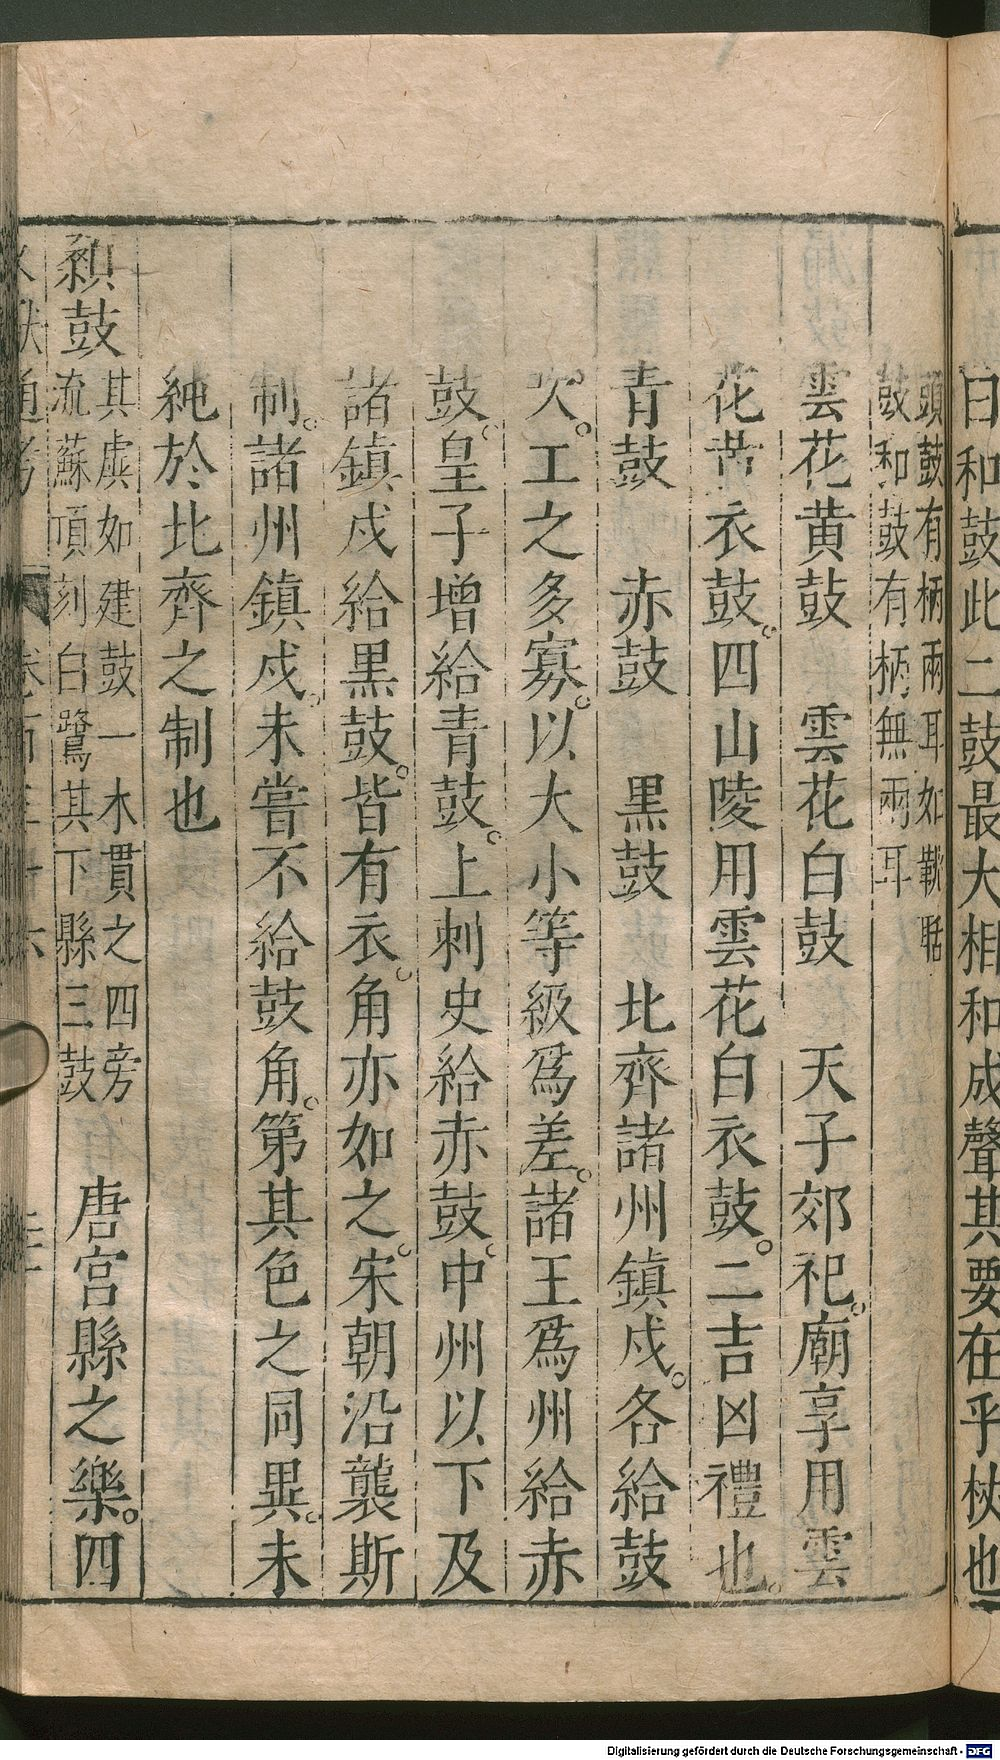 曰和鼓此二鼓最大相和成聲其要在乎杖也
頭鼓有柄兩耳如鞉聒
鼓和鼓有柄無兩耳
雲花黄鼓　雲花白鼓　天子郊祀。廟享用雲
花苦衣鼓。四山陵用雲花白衣鼓。二吉凶禮也。
青鼓　赤鼓　黒鼓　北齊諸州鎮戍。各給鼓
吹。工之多寡。以大小等級爲差。諸王爲州給赤
鼓。皇子增給青鼓。上刺史給赤鼓。中州以下及
諸鎮戍給黒鼓。皆有衣。角亦如之。宋朝沿襲斯
制。諸州鎮戍。未嘗不給鼓角。第其色之同異。未
純於北齊之制也
鼓
其虡如建鼓一木貫之四旁
流蘇項刻白鷺其下縣三鼓
唐宫縣之樂。四